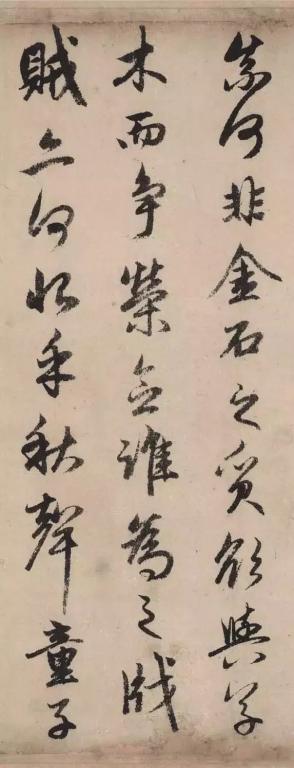 奈何非金石之質欲與草
木而爭榮念誰為之戕
賊亦何恨乎秋聲童子